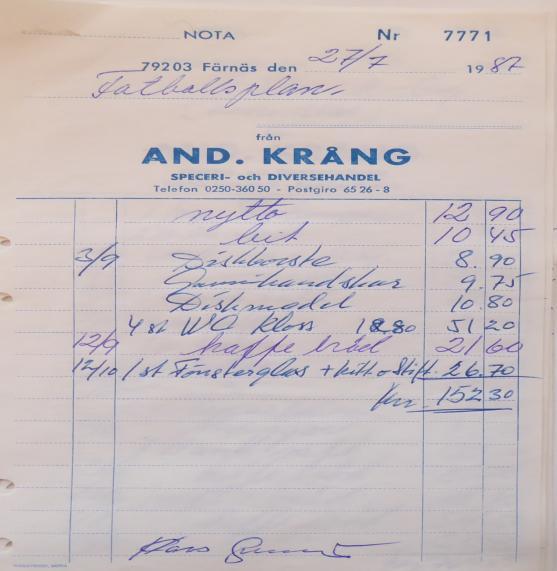 NOTA Nr 7771
79203 Färnäs den 27/7 1987
Fotbollsplan.
från
AND. KRÅNG
SPECERI- och DIVERSEHANDEL
Telefon 0250-360 50 - Postgiro 65 26 - 8
nytto 12 90
bit 10 45
3/9 Diskborste 8.90
Gumihandskar 9.75
Diskmedel 10.80
4 st WC Kloss 12.80 51 20
12/9 kaffe bröd 21 60
12/10 1 st Fönsterglas + kitt o Stift. 26.70
Kr. 152 30